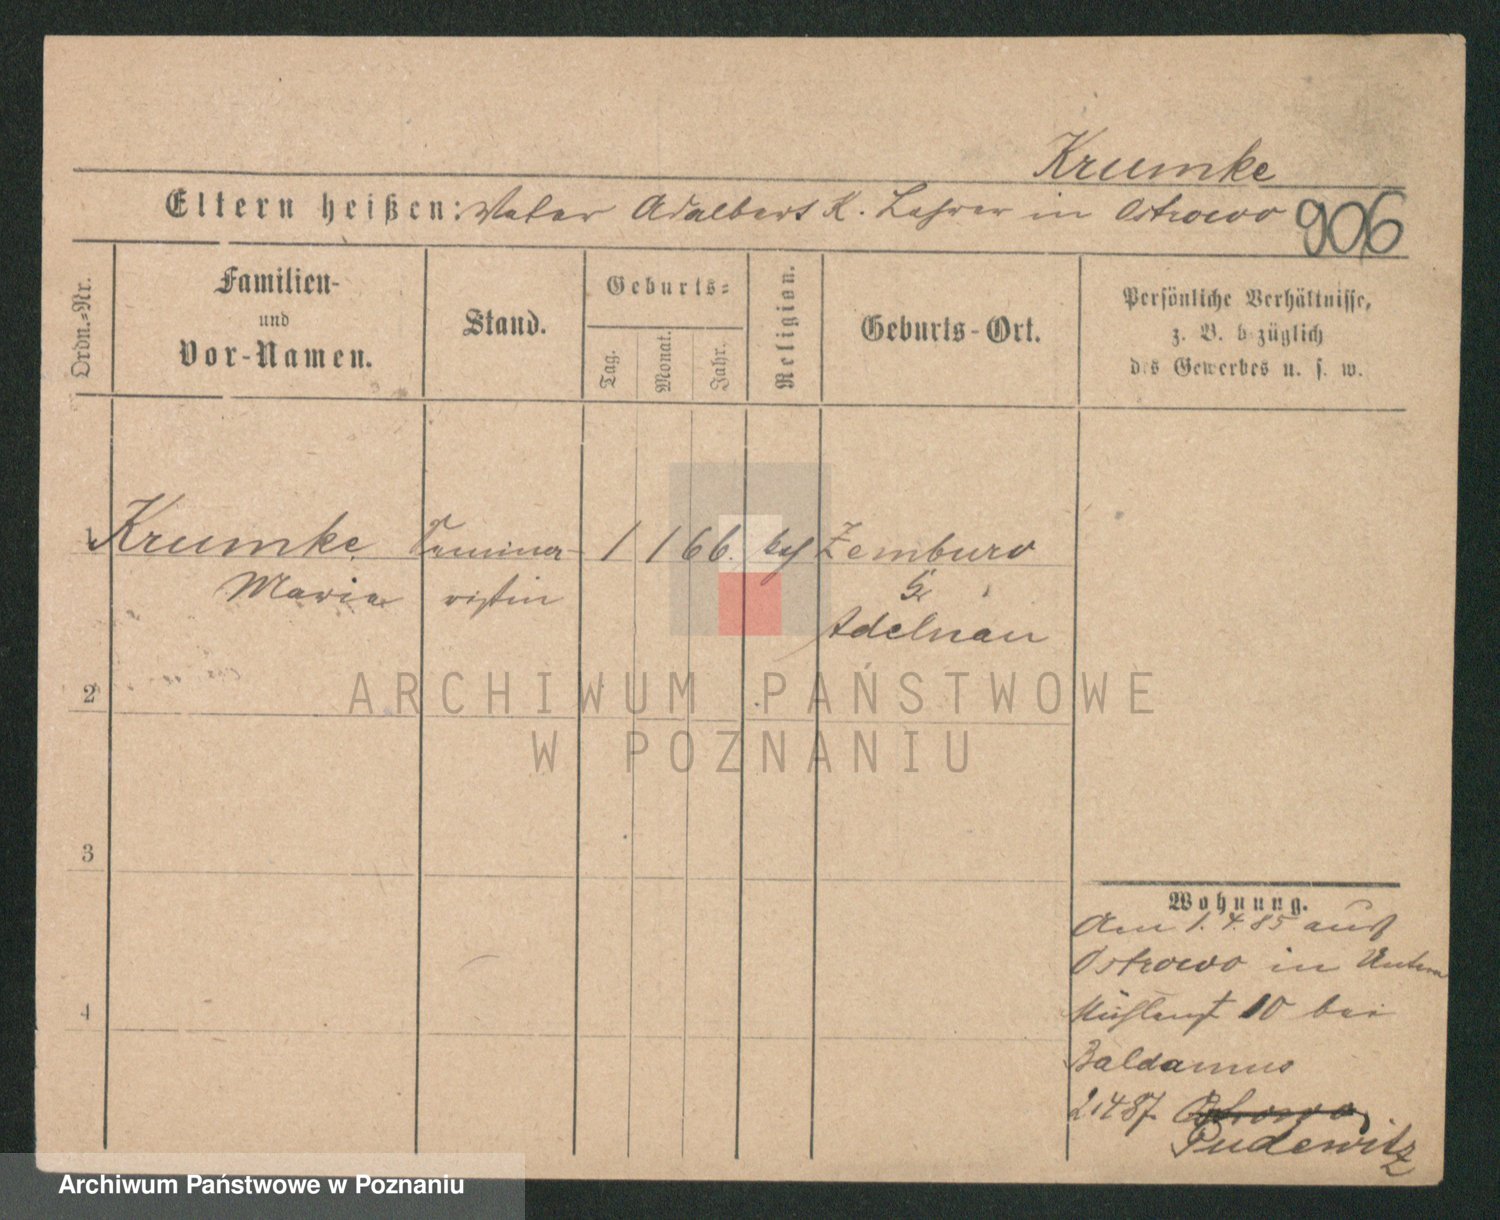 Krumke
Eltern heißen: Vater Adalbert K. Lehrer in Ostrowo
906
Ordn.=Nr.
Familien-
und
Vor-Namen.
Stand.
Geburts=
Tag.
Monat.
Jahr.
Religion.
Geburts-Ort.
Persönliche Verhältnisse,
z. B. bezüglich
des Gewerbes u. s. w.
1 Krumke Seminar- 1 1 66. Zemburo
Maria ristin
Adelnau
2
3
4
Wohnung.
Am 1.4.85 aus
Ostrowo in Unterm
Mühlenst 10 bei
Baldamus
2.4 87 Ostrowo
Pudewitz
ARCHIWUM PAŃSTWOWE
W POZNANIU
Archiwum Państwowe w Poznaniu